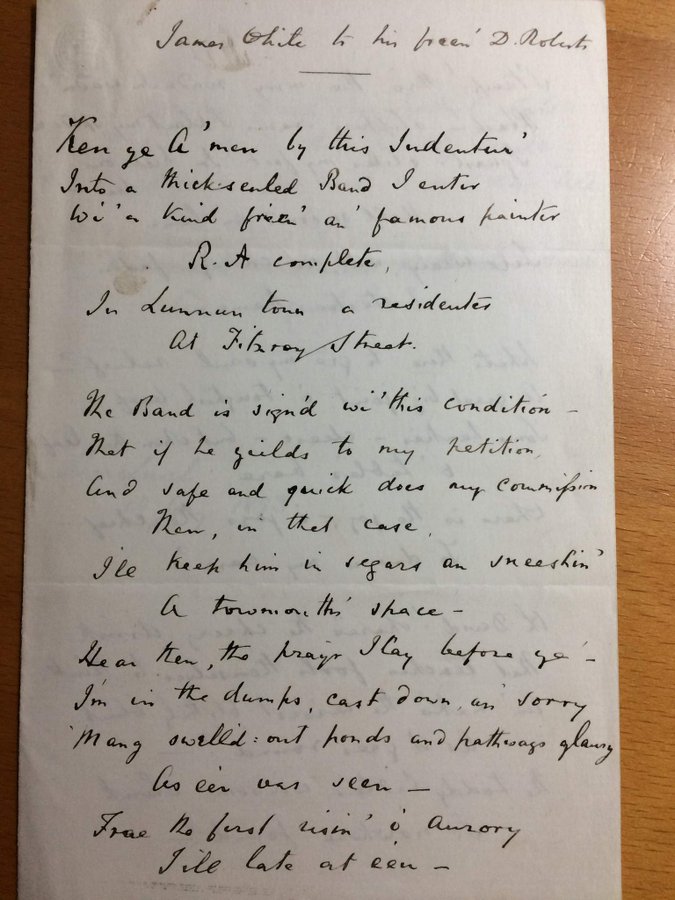 James White to his freen' D. Roberts
Ken ye A' men by this Indentur'
Into a thick-sealed Band I enter
Wi' a kind freen' an' famous painter
R. A complete,
In Lunnun town a residenter
At Fitzroy Street.
The Band is sign'd wi' this condition –
That if he yeilds to my petition,
And safe and quick does my Commission
Then, in that case,
I'le keep him in segars an sneeshin'
A towmonth's space –
Hear then, the prayr I lay before ye' –
I'm in the dumps, cast down, an' sorry
'Mang swell'd-out ponds and pathways glaury
As e'er was seen –
Frae the first risin' o' Aurory
Till late at e'en –